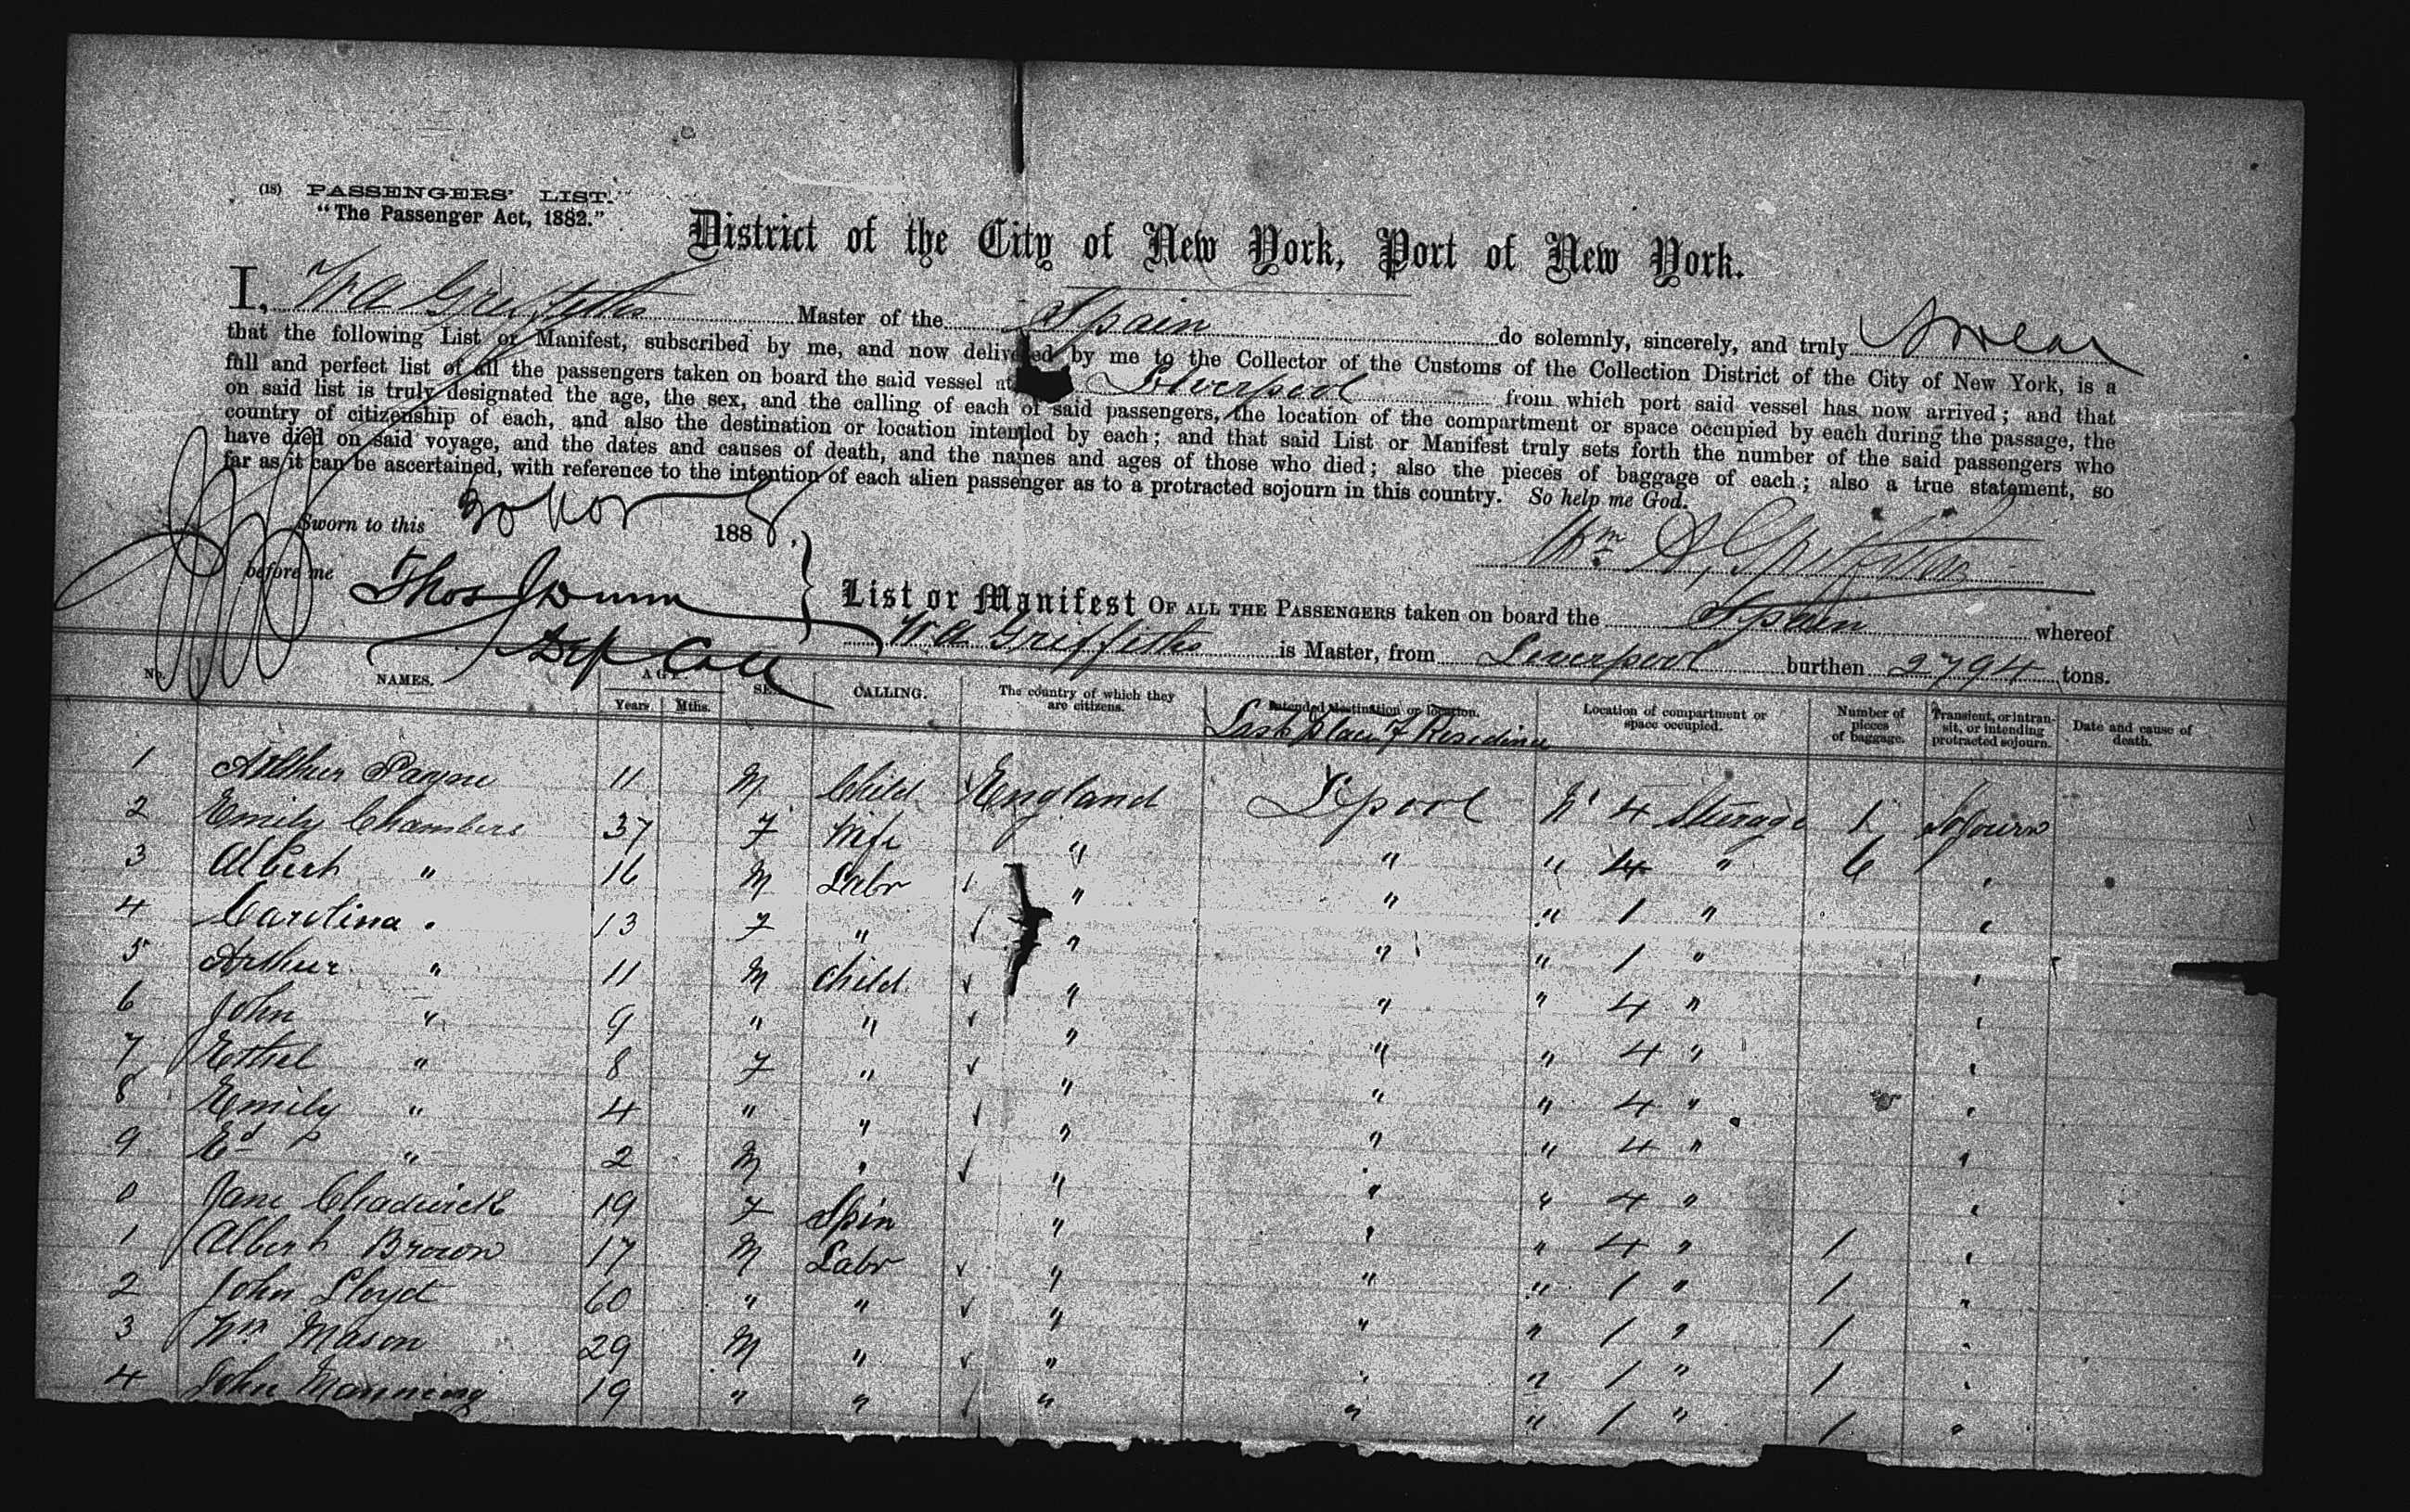 (18) PASSENGERS' LIST.
"The Passenger Act, 1882."
District of the City of New York, Port of New York.
I, W A Griffiths Master of the Spain do solemnly, sincerely, and truly Swear
that the following List or Manifest, subscribed by me, and now delivered by me to the Collector of the Customs of the Collection District of the City of New York, is a
full and perfect list of all the passengers taken on board the said vessel at Liverpool from which port said vessel has now arrived; and that
on said list is truly designated the age, the sex, and the calling of each of said passengers, the location of the compartment or space occupied by each during the passage, the
country of citizenship of each, and also the destination or location intended by each; and that said List or Manifest truly sets forth the number of the said passengers who
have died on said voyage, and the dates and causes of death, and the names and ages of those who died; also the pieces of baggage of each; also a true statement, so
far as it can be ascertained, with reference to the intention of each alien passenger as to a protracted sojourn in this country. So help me God.
Sworn to this 30 Nov 1888,
Wm A. Griffiths
before me Thos J Dunn
Dep Coll
List or Manifest OF ALL THE PASSENGERS taken on board the Spain whereof
W A Griffiths is Master, from Liverpool burthen 2794 tons.
No. NAMES. AGE. Years Mths. SEX CALLING. The country of which they are citizens. Intended destination or location. Last place of Residence Location of compartment or space occupied. Number of pieces of baggage. Transient, or intransit, or intending protracted sojourn. Date and cause of death.
1 Arthur 11 M Child England Lpool 4 Steerage 1 Sojourn
2 Emily Chambers 37 F Wife " " " 4 " 6 "
3 Albert " 16 M Labr " " " 1 " "
4 Carolina " 13 F " " " " 1 " "
5 Arthur " 11 M Child " " " 4 " "
6 John " 9 " " " " " 4 " "
7 Ethel " 8 F " " " " 4 " "
8 Emily " 4 " " " " " 4 " "
9 Ed P " 2 M " " " " 4 " "
0 Jane Chadwick 19 F Spin " " " 4 " 1 "
1 Albert Brown 17 M Labr " " " 1 " 1 "
2 John Lloyd 60 " " " " " 1 " 1 "
3 Wm Mason 29 M " " " " 1 " 1 "
4 John Manning 19 " " " " " 1 " 1 "